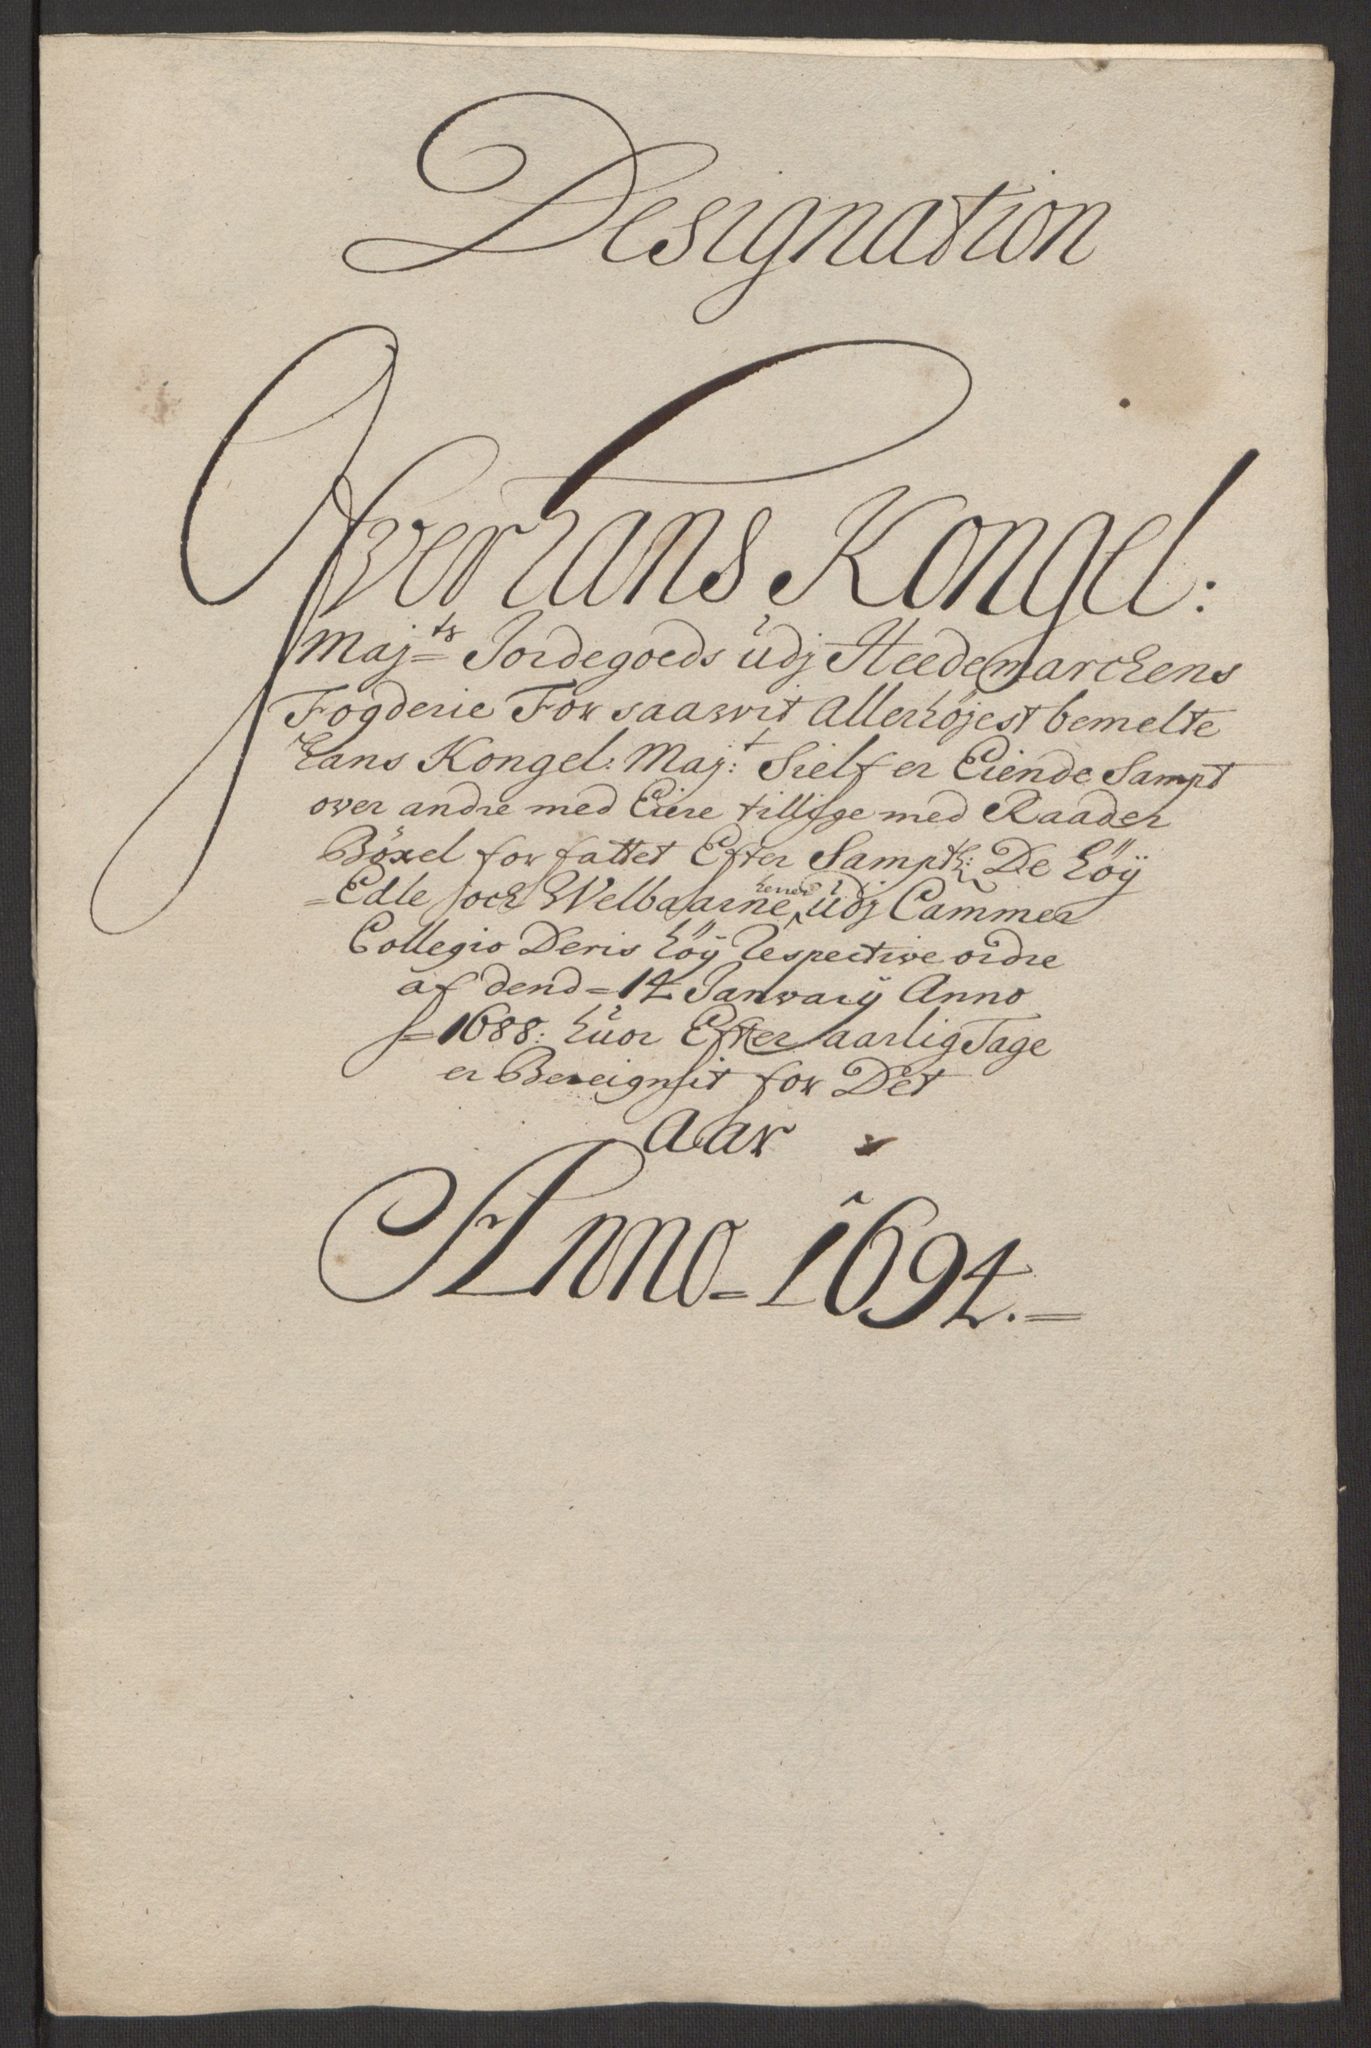 Designation
Over hans Kongel:
Maj=ts Jordegoeds udj Heedemarchens
Fogderie For saawit Allerhøjest bemelte
hans Kongel: Maj:t Sielf er Eiende Sampt
over andre med Eiere tillige med Raader
Böxel for fattet Efter Sampth: De höÿ
=Edle och Welbaarne herrer udj Cammer
Collegio Deris höÿ Respective ordre
af dend=14 Janwarÿ Anno
=1688: huor Efter aarlig Tage
er Bereignsit for Det
aar
Anno=1694.=